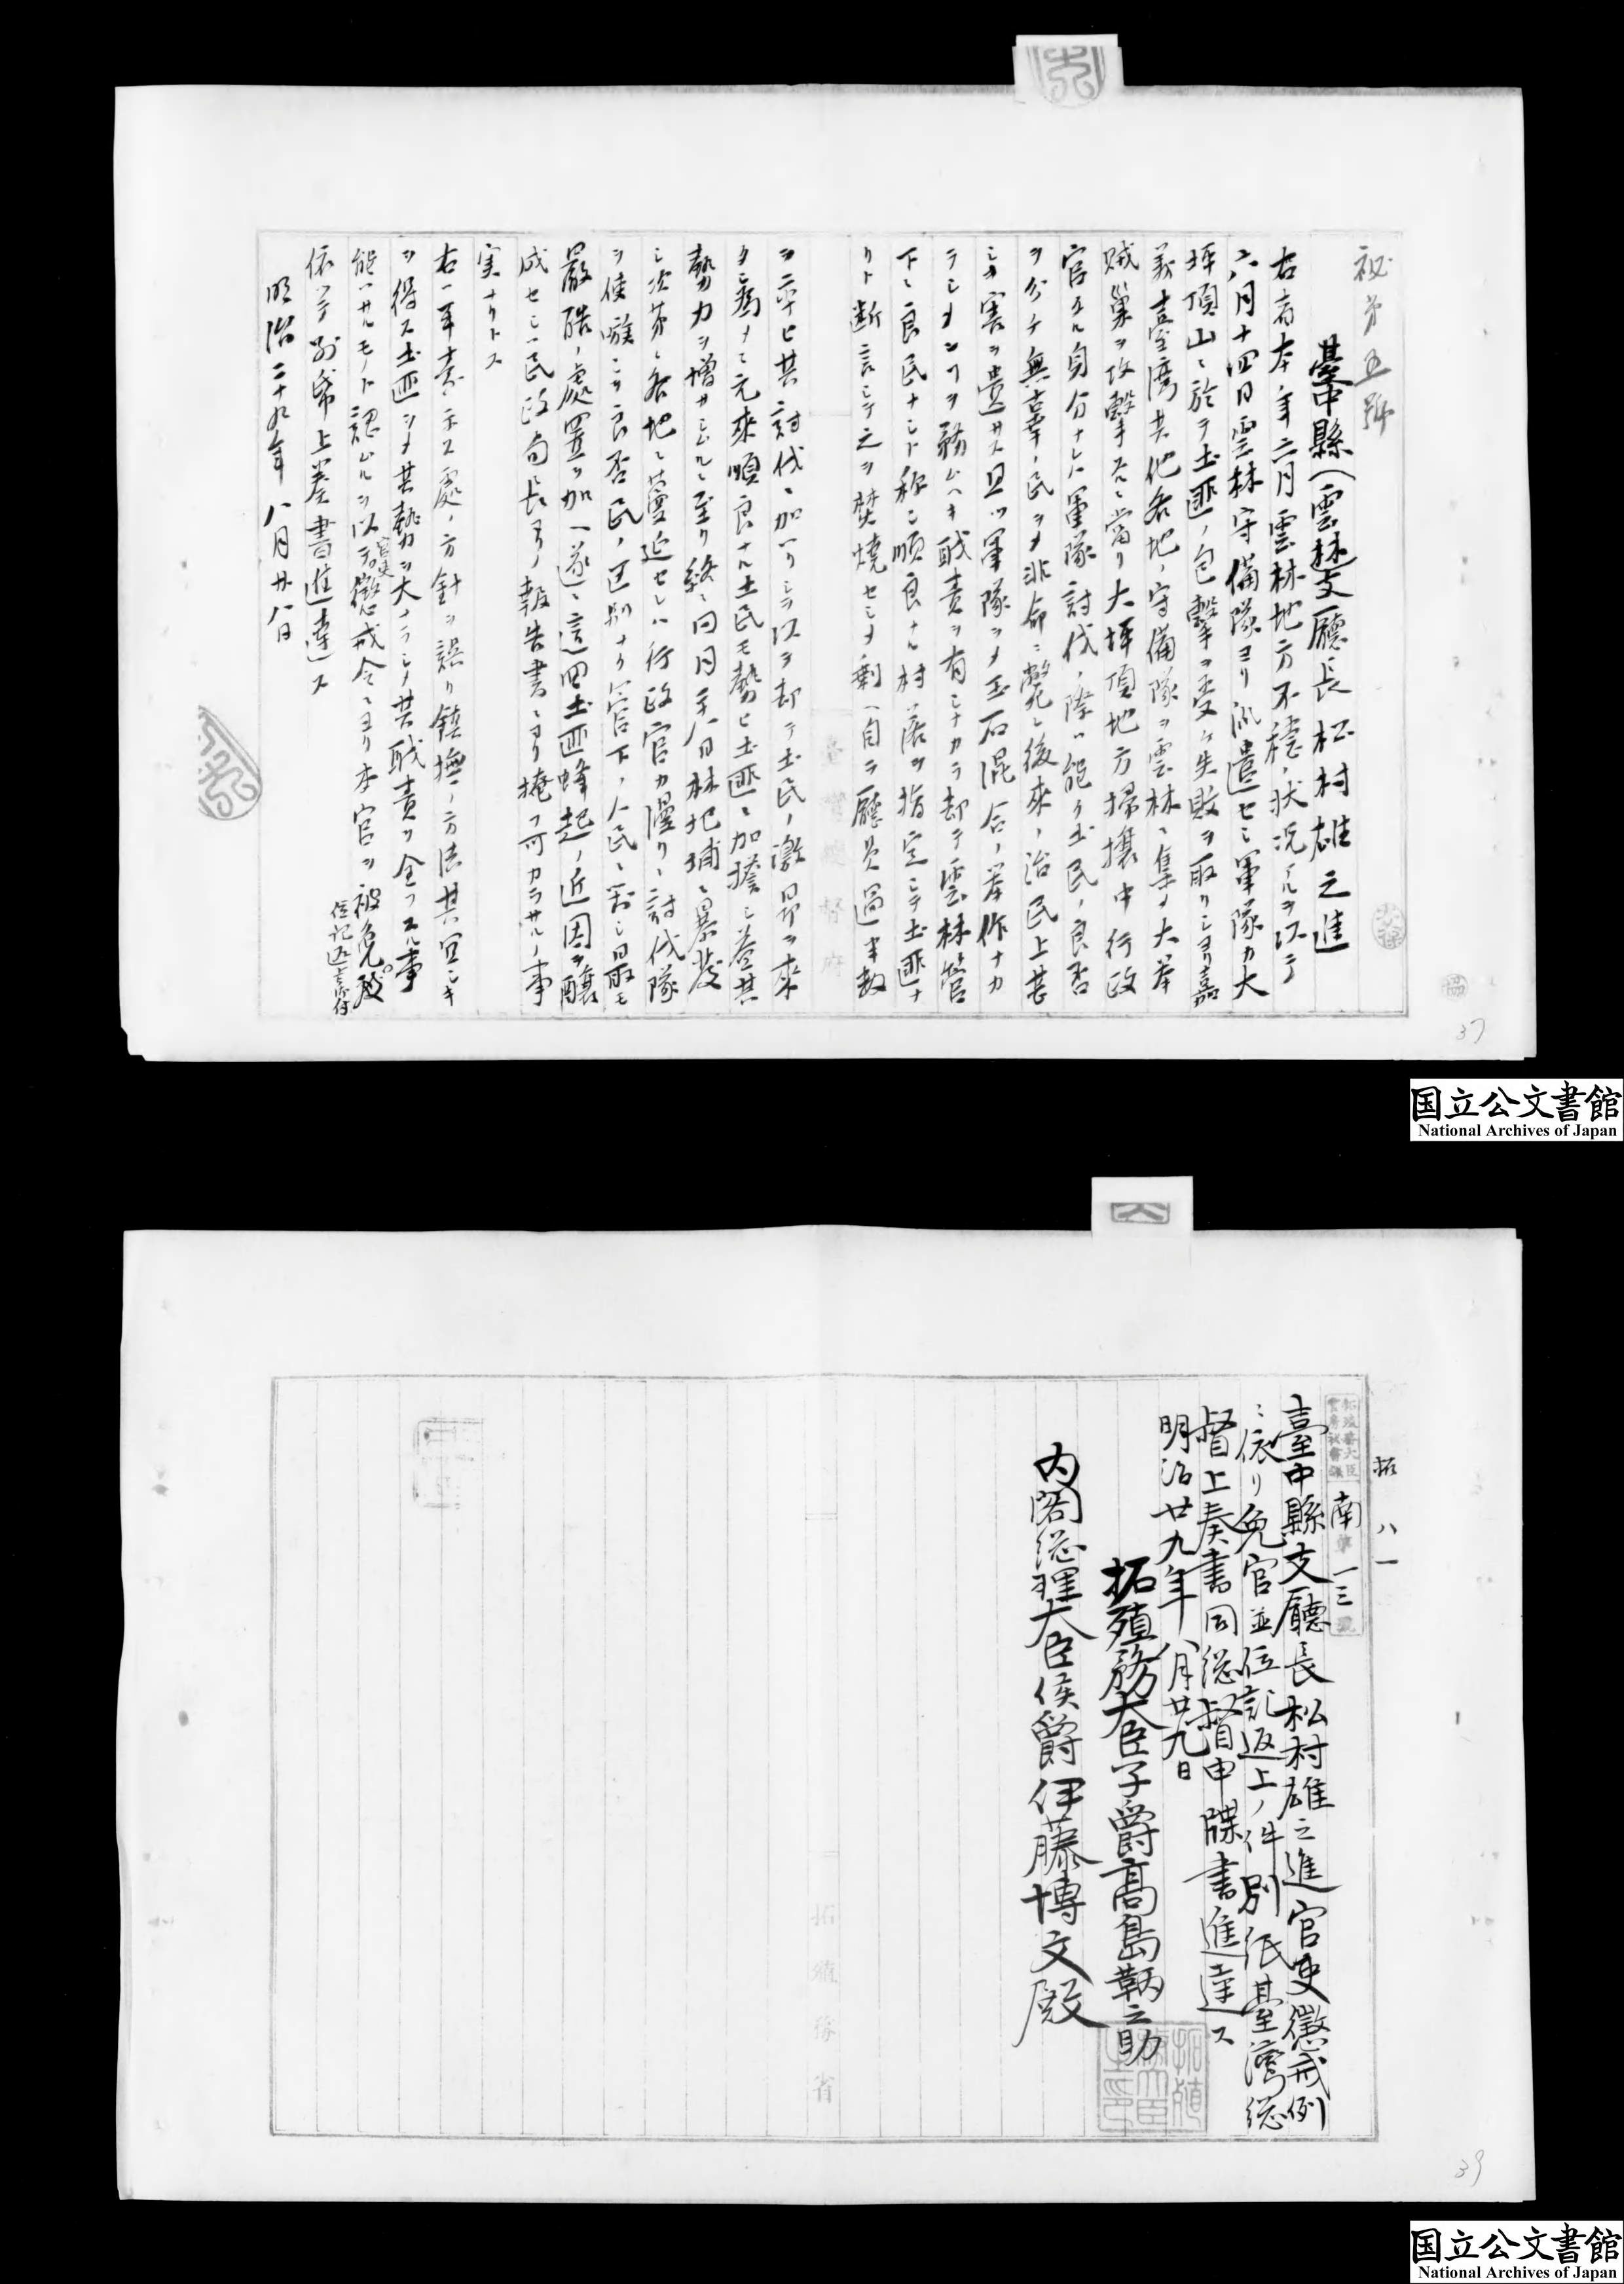 秘第五號
臺中縣雲林支廳長松村雄之進
右者本年二月雲林地方不穏ノ状況アルヲ以テ
六月十四日雲林守備隊ヨリ派遣セシ軍隊カ大
坪頂山ニ於テ土匪ノ包撃ヲ受ケ失敗ヲ取リシヨリ嘉
義臺湾其他各地ノ守備隊ヲ雲林ニ集メ大挙
賊巣ヲ攻撃スルニ當リ大坪頂地方掃攘中行政
官タル身分ナレハ軍隊討伐ノ際ハ能ク土民ノ良否
ヲ分チ無辜ノ民ヲメ非命ニ斃レ後来ノ治民上甚
シカ害ヲ遺サス且ツ軍隊ヲメ玉石混合ノ挙作ナカ
ラシメンヿヲ務ムヘキ職責ヲ有シナカラ却テ雲林管
下ニ良民ナシト称シ順良ナル村落ヲ指定シテ土匪ナ
リト断言シテ之ヲ焚焼セシメ剰ヘ自ラ廳員過半数
ヲ率ヒ其討伐ニ加ハリシヲ以テ却テ土民ノ激昂ヲ来
タシ為メニ元来順良ナル土民モ勢ヒ土匪ニ加擔シ益其
勢力ヲ増サシムルニ至リ終ニ同月三十日林圯埔ニ暴發
シ次第ニ各地ニ蔓延セシハ行政官カ漫リニ討伐隊
ヲ使嗾シテ良否民ノ区別ナク管下ノ人民ニ対シ最モ
嚴酷ノ處置ヲ加ヘ遂ニ這回土匪蜂起ノ近因ヲ醸
成セシハ民政局長ヨリノ報告書ニヨリ掩フ可カラサルノ事
実ナリトス
右ハ一年表ニ示ス處ノ方針ヲ誤リ鎮撫ノ方法其宜シキ
ヲ得ス土匪ヲメ其勢力ヲ大ナラシメ其職責ヲ全フスル事
能ハサルモノト認ムルヲ以テ官吏懲戒令ニヨリ本官ヲ被免度
位記返上ノ儀
依テ別帋上奏書進達ス
明治二十九年八月廿八日
37
国立公文書館
National Archives of Japan
拓八一
拓殖務大臣官房秘書課
南第一三號
臺中縣支廳長松村雄之進官吏懲戒例
ニ依リ免官並位記返上ノ件別紙臺灣総
督上奏書同総督申牒書進達ス
明治廿九年八月廿九日
拓殖務大臣子爵高島鞆之助
拓殖務大臣之印
内閣総理大臣侯爵伊藤博文殿
拓殖務省
39
国立公文書館
National Archives of Japan